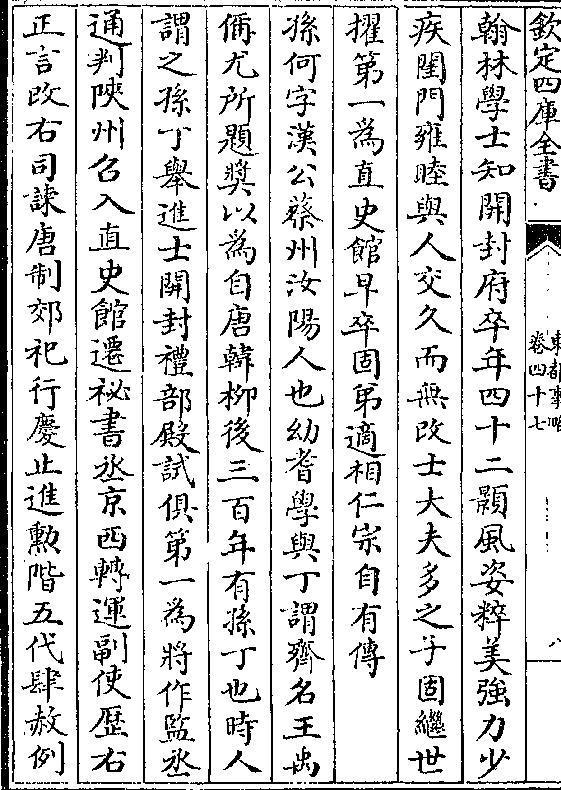 欽定四庫全書
東都事略
卷四十七
八
翰林學士知開封府卒年四十二顥風姿粹美強力少
疾閨門雍睦與人交久而無改士大夫多之子固繼世
擢第一為直史館早卒固弟適相仁宗自有傳
孫何字漢公蔡州汝陽人也幼耆學與丁謂齊名王禹
偁尤所題奬以為自唐韓柳後三百年有孫丁也時人
謂之孫丁舉進士開封禮部殿試俱第一為將作監丞
通判陜州召入直史館遷祕書丞京西轉運副使歴右
正言改右司諫唐制郊祀行慶止進勲階五代肆赦例